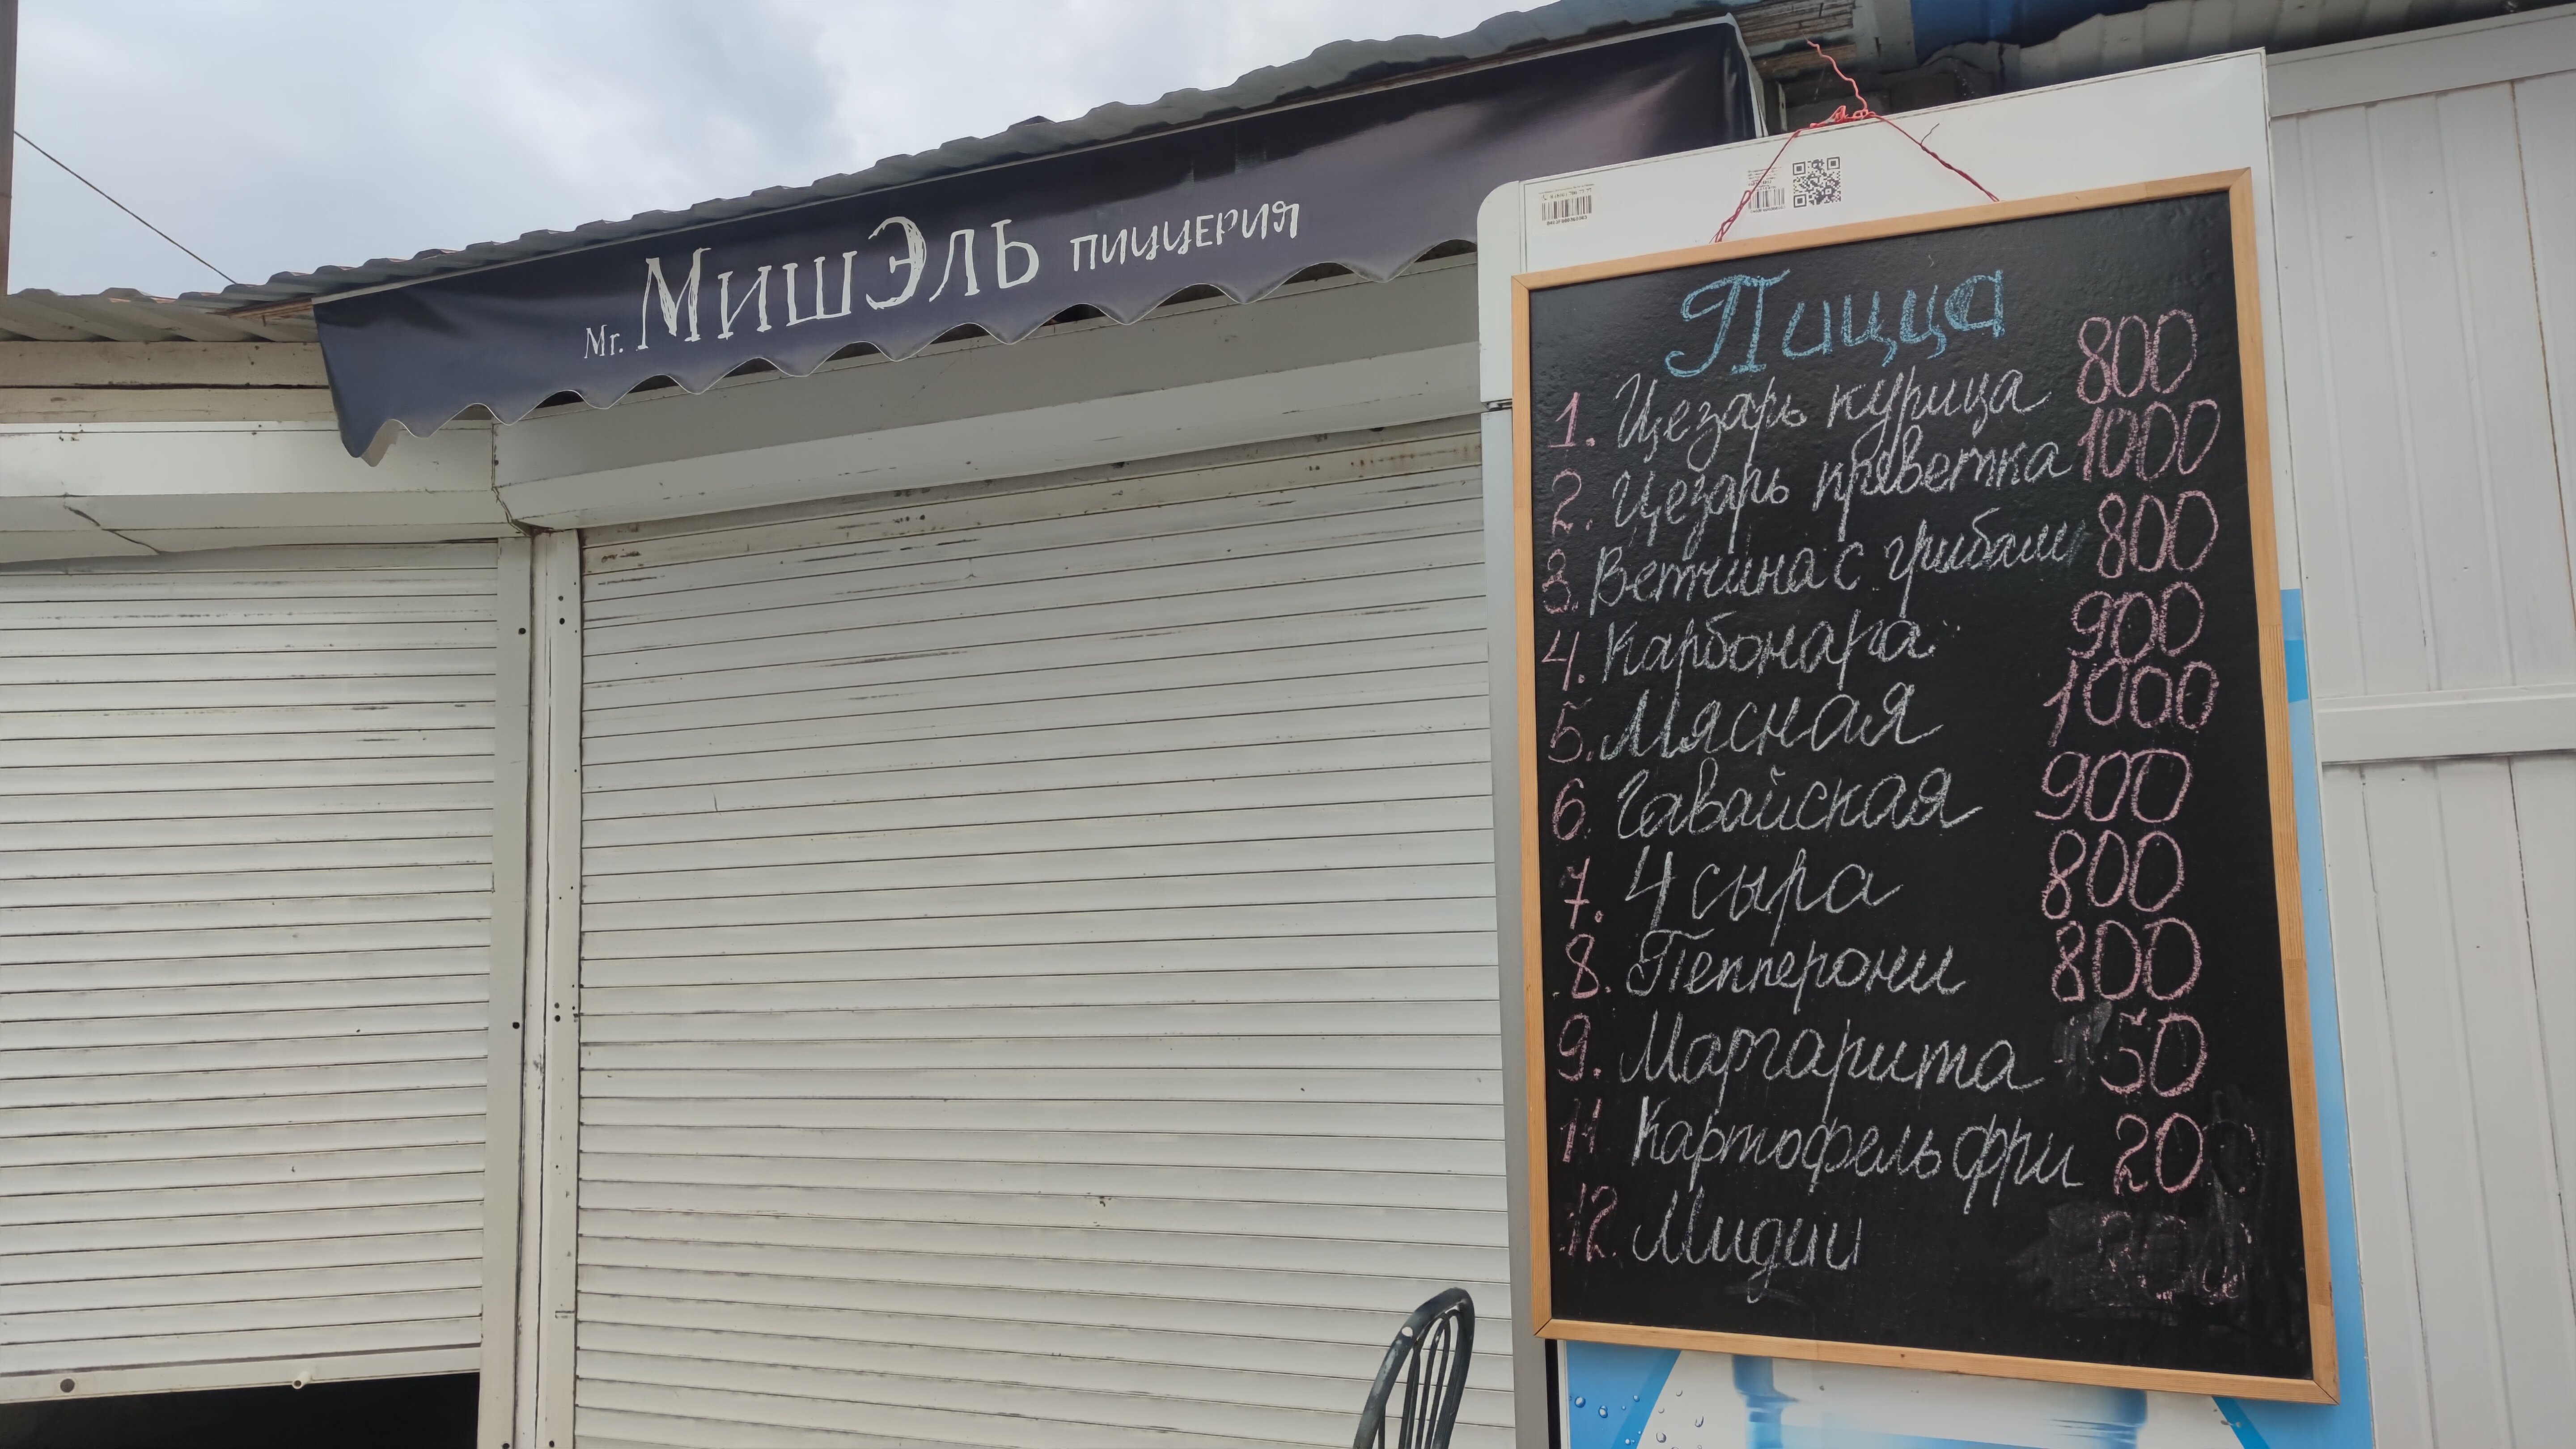 Mr. МишЭль пиццерия
Пицца
1. Цезарь курица 800
2. Цезарь креветка 1000
3. Ветчина с грибами 800
4. Карбонара 900
5. Мясная 1000
6. Гавайская 900
7. 4 сыра 800
8. Пепперони 800
9. Маргарита 50
11 Картофель фри 20
12. Мидии